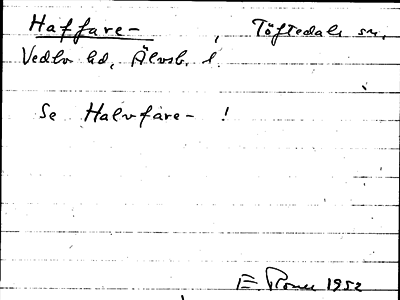 Haffare- , Töftedals sn,
Vedbo hd, Älvsb. l.
Se Halvfare- !
E 1952